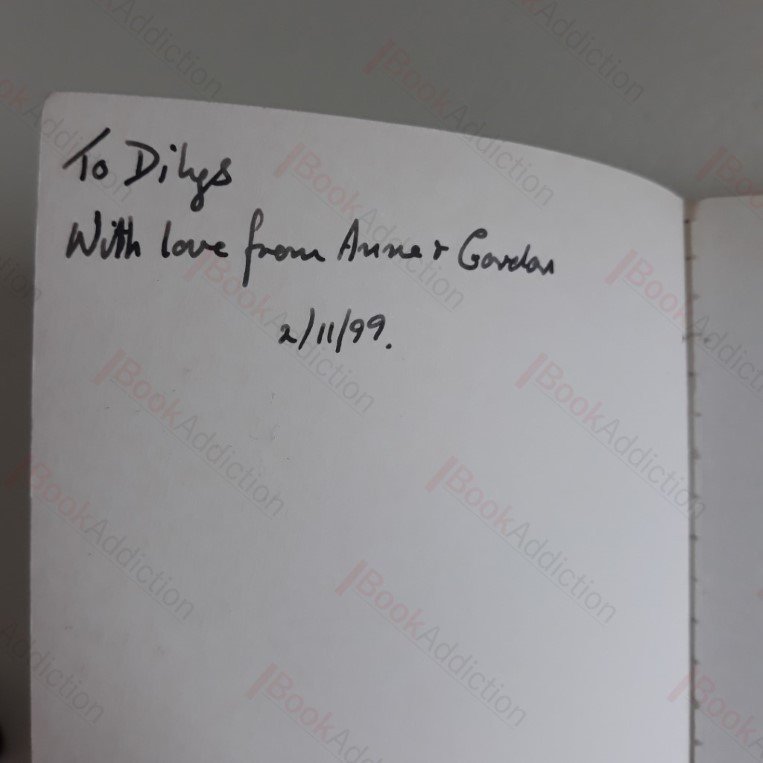 To Dilys
With love from Anne + Gordon
2/11/99.
BookAddiction